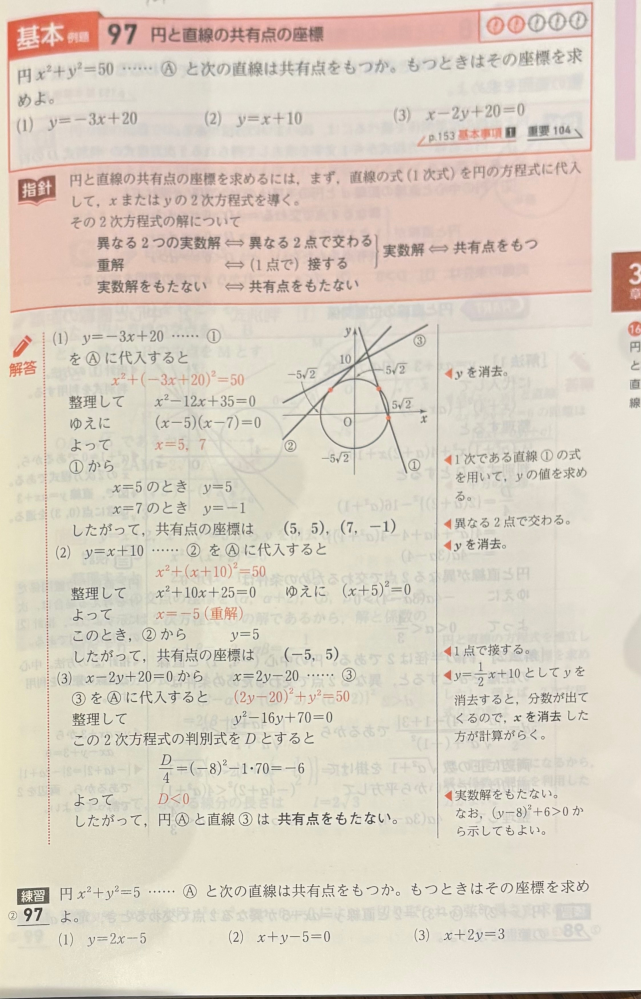 基本 例題 97 円と直線の共有点の座標
円 x²+y²=50 …… Ⓐ と次の直線は共有点をもつか。もつときはその座標を求
めよ。
(1) y=−3x+20 (2) y=x+10 (3) x−2y+20=0
p.153 基本事項 1 重要 104
指針 円と直線の共有点の座標を求めるには，まず，直線の式(1次式)を円の方程式に代入
して，x または y の2次方程式を導く。
その2次方程式の解について
異なる2つの実数解 ⟺ 異なる2点で交わる
重解 ⟺ (1点で) 接する
実数解 ⟺ 共有点をもつ
実数解をもたない ⟺ 共有点をもたない
解答
(1) y=−3x+20 …… ①
をⒶに代入すると
x²+(−3x+20)²=50
整理して x²−12x+35=0
ゆえに (x−5)(x−7)=0
よって x=5, 7
①から
x=5のとき y=5
x=7のとき y=−1
したがって，共有点の座標は (5, 5), (7, −1)
(2) y=x+10 …… ② をⒶに代入すると
x²+(x+10)²=50
整理して x²+10x+25=0 ゆえに (x+5)²=0
よって x=−5 (重解)
このとき，②から y=5
したがって，共有点の座標は (−5, 5)
(3) x−2y+20=0から x=2y−20 …… ③
③をⒶに代入すると (2y−20)²+y²=50
整理して y²−16y+70=0
この2次方程式の判別式をDとすると
D/4=(−8)²−1・70=−6
よって D<0
したがって，円Ⓐと直線③は 共有点をもたない。
y
③
10
−5√2
5√2
5√2
O
x
②
−5√2
①
◀yを消去。
◀1次である直線①の式
を用いて，yの値を求め
る。
◀異なる2点で交わる。
◀yを消去。
◀1点で接する。
◀y=1/2x+10としてyを
消去すると，分数が出て
くるので，xを消去した
方が計算がらく。
◀実数解をもたない。
なお，(y−8)²+6>0か
ら示してもよい。
3
章
16
円
と
直
線
練習 円 x²+y²=5 …… Ⓐ と次の直線は共有点をもつか。もつときはその座標を求め
② 97 よ。
(1) y=2x−5 (2) x+y−5=0 (3) x+2y=3